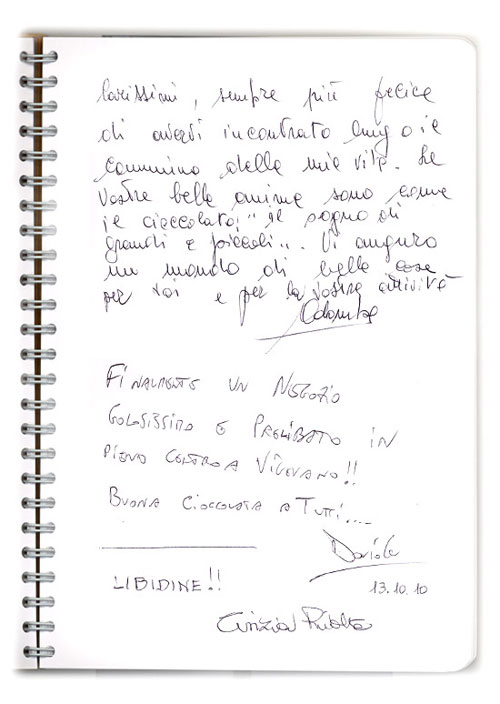 Carissimi, sempre più felice
di avervi incontrato lungo il
cammino della mia vita. Le
vostre belle anime sono come
il cioccolato: "il sogno di
grandi e piccoli". Vi auguro
un mondo di belle cose
per voi e per la vostra attività
Colomba
FINALMENTE UN NEGOZIO
GOLOSISSIMO E PRELIBATO IN
PIENO CENTRO A VIGEVANO!!
BUONA CIOCCOLATA A TUTTI....
Daniele
13.10.10
LIBIDINE!!
Cinzia